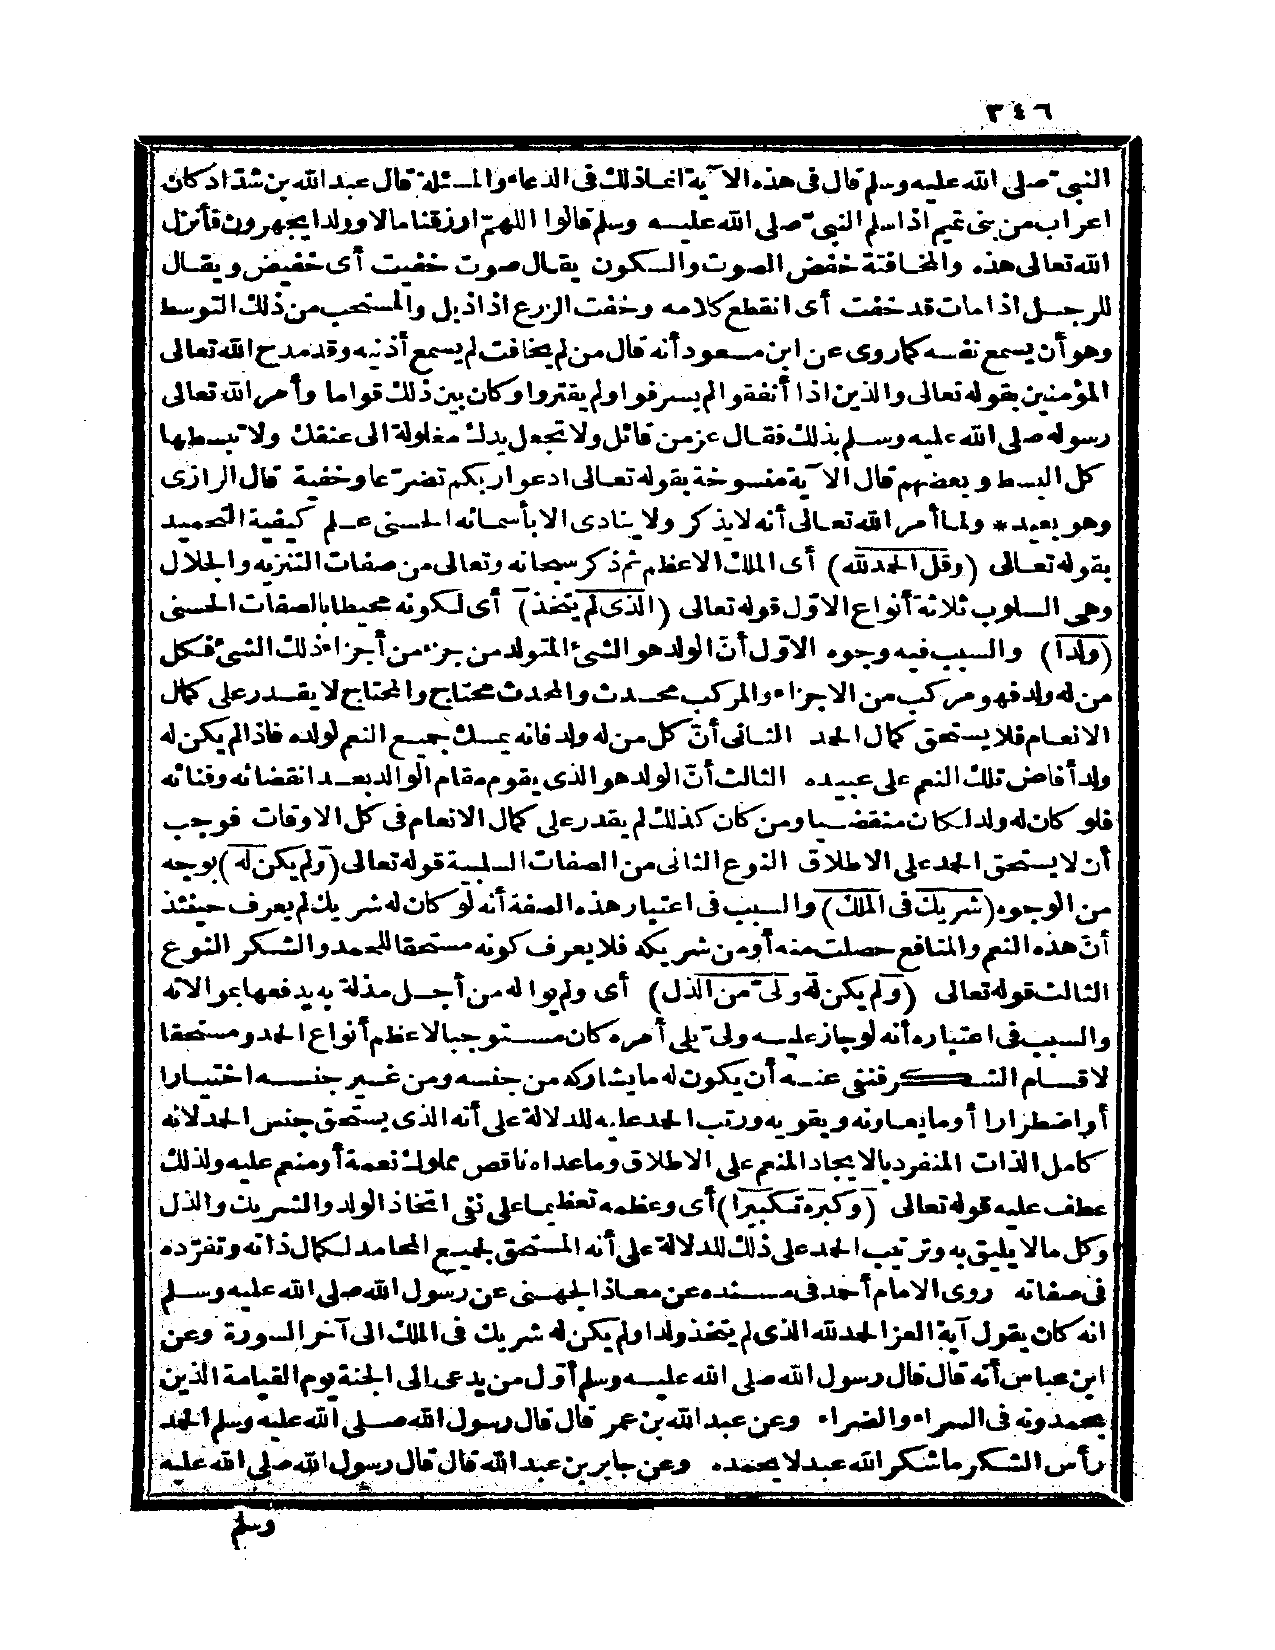 ٣٤٦
النبيّ صلى الله عليه وسلم قال في هذه الآية انما ذلك في الدعاء والمسئلة قال عبد الله بن شدّاد كان
اعراب من بني تميم اذا سلم النبيّ صلى الله عليه وسلم قالوا اللهمّ ارزقنا مالا وولدا يجهرون فأنزل
الله تعالى هذه والمخافتة خفض الصوت والسكون يقال صوت خفيت أى خفيض ويقال
للرجل اذا مات قد خفت أى انقطع كلامه وخفت الزرع اذا ذبل والمستحب من ذلك التوسط
وهو أن يسمع نفسه كما روى عن ابن مسعود أنه قال من لم يخافت لم يسمع أذنيه وقد مدح الله تعالى
المؤمنين بقوله تعالى والذين اذا أنفقوا لم يسرفوا ولم يقتروا وكان بين ذلك قواما وأمر الله تعالى
رسوله صلى الله عليه وسلم بذلك فقال عز من قائل ولا تجعل يدك مغلولة الى عنقك ولا تبسطها
كل البسط وبعضهم قال الآية منسوخة بقوله تعالى ادعوا ربكم تضرّعا وخفية قال الرازى
وهو بعيد * ولما أمر الله تعالى أنه لا يذكر ولا ينادى الا بأسمائه الحسنى علم كيفية التحميد
بقوله تعالى (وقل الحمد لله) أى الملك الاعظم ثم ذكر سبحانه وتعالى من صفات التنزيه والجلال
وهى السلوب ثلاثة أنواع الاوّل قوله تعالى (الذى لم يتخذ) أى لكونه محيطا بالصفات الحسنى
(ولدا) والسبب فيه وجوه الاوّل أنّ الولد هو الشئ المتولد من جزء من أجزاء ذلك الشئ فكل
من له ولد فهو مركب من الاجزاء والمركب محدث والمحدث محتاج والمحتاج لا يقدر على كمال
الانعام فلا يستحق كمال الحمد الثانى أنّ كل من له ولد فانه يمسك جميع النعم لولده فاذا لم يكن له
ولد أفاض تلك النعم على عبيده الثالث أنّ الولد هو الذى يقوم مقام الوالد بعد انقضائه وفنائه
فلو كان له ولد لكان منقضيا ومن كان كذلك لم يقدر على كمال الانعام في كل الاوقات فوجب
أن لا يستحق الحمد على الاطلاق النوع الثانى من الصفات السلبية قوله تعالى (ولم يكن له) بوجه
من الوجوه (شريك فى الملك) والسبب فى اعتبار هذه الصفة أنه لو كان له شريك لم يعرف حينئذ
أنّ هذه النعم والمنافع حصلت منه أو من شريكه فلا يعرف كونه مستحقا للحمد والشكر النوع
الثالث قوله تعالى (ولم يكن له ولىّ من الذل) أى ولم يوا له من أجل مذلة به يدفعها بموالاته
والسبب فى اعتباره أنه لو جاز عليه ولىّ يلى أمره كان مستوجبا لاعظم أنواع الحمد ومستحقا
لاقسام الشكر فنفى عنه أن يكون له ما يشاركه من جنسه ومن غير جنسه اختيارا
أو اضطرارا أو ما يعاونه ويقويه ورتب الحمد عليه للدلالة على أنه الذى يستحق جنس الحمد لانه
كامل الذات المنفرد بالايجاد المنعم على الاطلاق وما عداه ناقص مملوك نعمة أو منعم عليه ولذلك
عطف عليه قوله تعالى (وكبره تكبيرا) أى وعظمه تعظيما على نفى اتخاذ الولد والشريك والذل
وكل ما لا يليق به وترتيب الحمد على ذلك للدلالة على أنه المستحق لجميع المحامد لكمال ذاته وتفرّده
فى صفاته روى الامام أحمد فى مسنده عن معاذ الجهنى عن رسول الله صلى الله عليه وسلم
انه كان يقول آية العز الحمد لله الذى لم يتخذ ولدا ولم يكن له شريك فى الملك الى آخر السورة وعن
ابن عباس أنه قال قال رسول الله صلى الله عليه وسلم أوّل من يدعى الى الجنة يوم القيامة الذين
يحمدونه فى السراء والضراء وعن عبد الله بن عمر قال قال رسول الله صلى الله عليه وسلم الحمد
رأس الشكر ما شكر الله عبد لا يحمده وعن جابر بن عبد الله قال قال رسول الله صلى الله عليه
وسلم